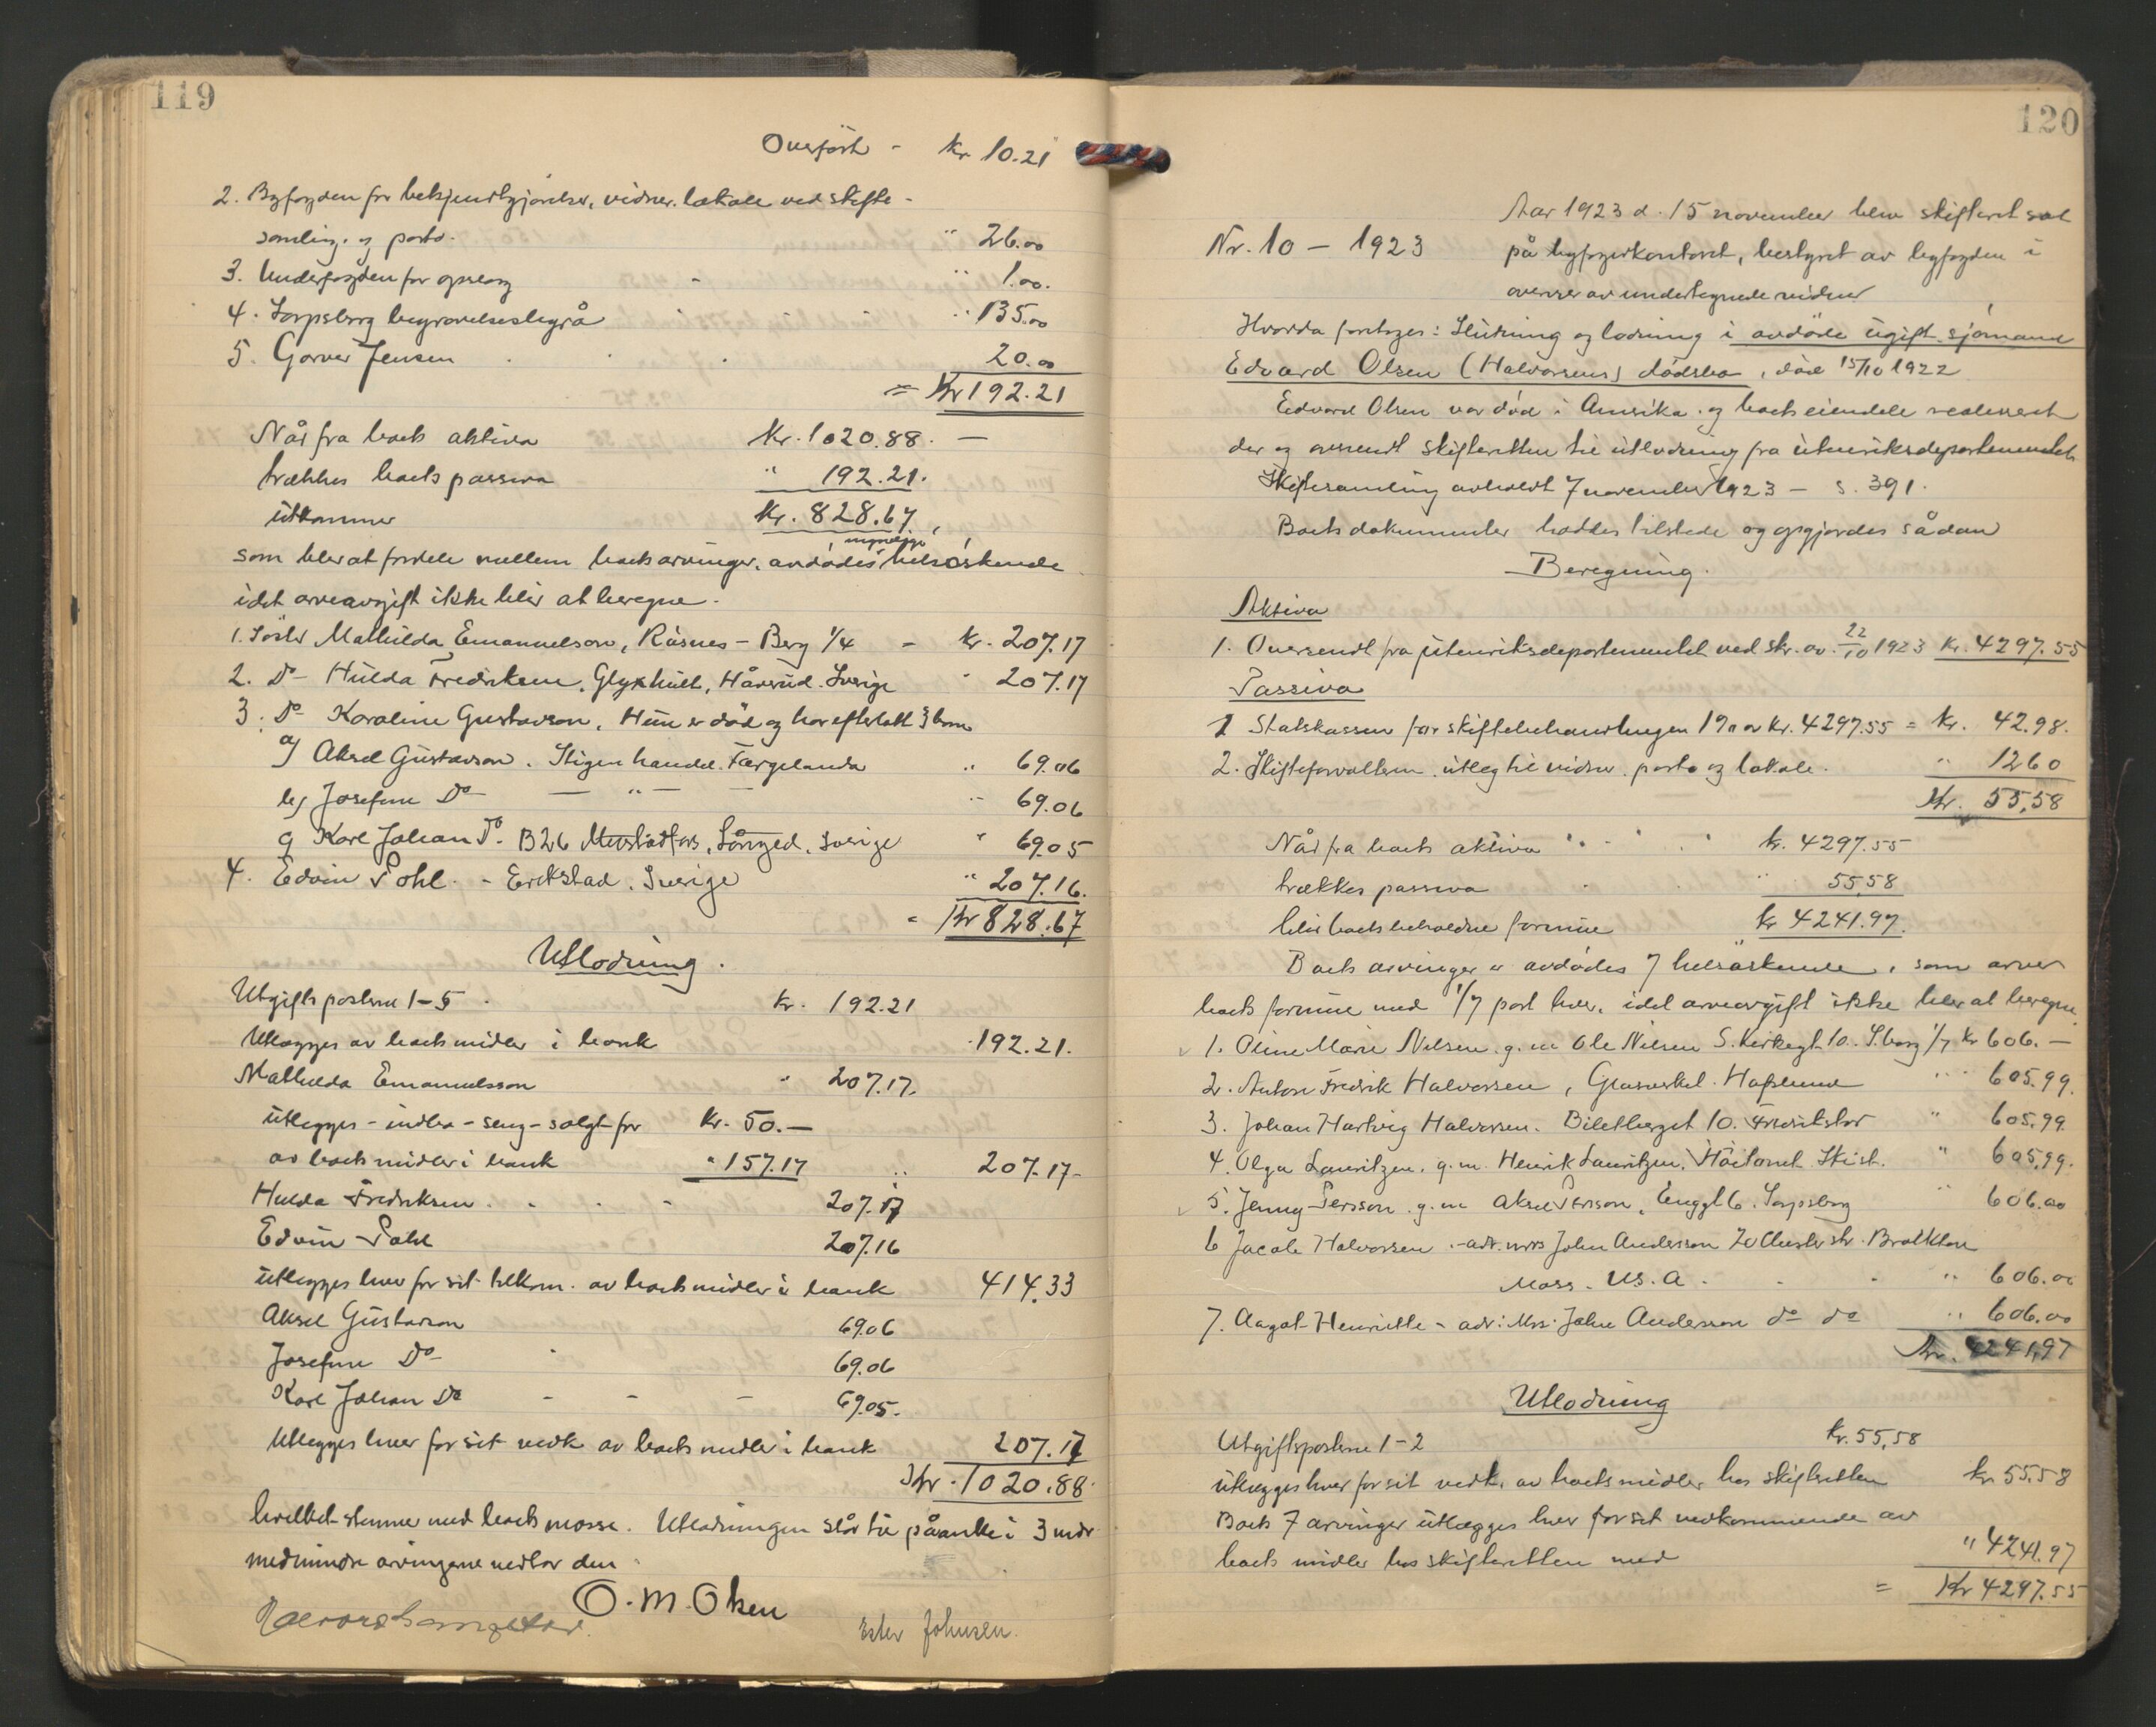 119
Overført - Kr 10.21
2. Byfogden for bekjendtgjørelser, vidner, lokale ved skifte-
samling. og porto. " 26.00
3. Underfogden for opsøg - " 1.00.
4. Sarpsborg begravelsesbyrå " 135.00
5. Garver Jensen 20.00
= Kr 192.21
Når fra boets aktiva Kr. 1020.88. —
trækkes boets passiva " 192.21.
utkommer Kr. 828.67,
myndige
som blir at fordele mellem boets arvinger, avdødes helsøskende
idet arveavgift ikke blir at beregne.
1. Søster Mathilda Emanuelson, Råsnes - Berg 1/4 - Kr. 207.17
2. Do - Hulda Fredriksen, Glyxhult, Håverud. Sverige " 207.17
3. Do Karoline Gustavson, Hun er død og har efterlatt 3 barn
a) Aksel Gustavson. Stigen handel. Färgelanda " 69.06
b) Josefine Do — " — " 69.06
c) Karl Johan Do. B26 Mustadfors, Långed, Sverige " 69.05
4. Edvin Pohl. - Erikstad. Sverige " 207.16.
= Kr 828.67
Utlodning.
Utgiftsposterne 1-5. Kr. 192.21
Utlægges av boets midler i bank 192.21.
Mathilda Emanuelsson " 207.17.
utlegges - indbo - seng - solgt for Kr. 50.—
av boets midler i bank " 157.17 " 207.17-
Hulda Fredriksen. - - - 207.17
Edvin Pohl 207.16
utlegges hver for sit tilkom. av boets midler i bank 414.33
Aksel Gustavson 69.06
Josefine Do - 69.06
Karl Johan Do - - - 69.05.
Utlegges hver for sit vedk. av boets midler i bank 207.17
Kr. 1020.88.
hvilket stemmer med boets masse. Utlodningen står til påanke i 3 mdr
medmindre arvingerne vedtar den.
O. M. Olsen
Ester Johnsen.
120
Aar 1923 d. 15 november blev skifteret sat
Nr. 10 — 1923 på byfogdkontoret, bestyret av byfogden i
overvær av undertegnede vidner
Hvorda foretoges: Slutning og lodning i avdøde ugift sjømand
Edvard Olsen (Halvorsens) dødsbo, død 15/10 1922
Edvard Olsen var død i Amerika og boets eiendele realisert
der og oversendt skifteretten til utlodning fra utenriksdepartementet
Skiftesamling avholdt 7 november 1923 — s. 391.
Boets dokumenter haddes tilstede og opgjordes sådan
Beregning.
Aktiva
1. Oversendt fra utenriksdepartementet ved skr. av 22/10 1923 Kr. 4297.55
Passiva
1 Statskassen for skiftebehandlingen 1% av Kr. 4297.55 = Kr. 42.98.
2. Skifteforvalteren utleg til vidner, porto og lokale. " 12 60
Kr. 55,58
Når fra boets aktiva " - " kr. 4297.55
trækkes passiva " 55,58
blir boets beholdne formue kr 4241.97.
Boets arvinger er avdødes 7 helsøskende, som arver
boets formue med 1/7 part hver, idet arveavgift ikke blir at beregne
1. Oline Marie Nilsen, g. m Ole Nilsen S. Kirkegt 10. S.borg 1/7 kr 606.—
2. Anton Fredrik Halvorsen, Glasverket. Hafslund " 605.99.
3. Johan Hartvig Halvorsen. Biletberget 10. Fredrikstad " 605.99
4. Olga Lauritzen, g. m. Henrik Lauritzen, Skist. " 605.99.
5. Jenny Persson. g. m Aksel Persson, Enggt 6. Sarpsborg " 606.00
6 Jacob Halvorsen. - adr. mrs John Anderson 20 Chester str. Brockton
Mass. U.S.A. " 606.00
7. Aagot Henriette - adr: Mrs. John Anderson do do " 606.00
Kr. 4241,97
Utlodning
Utgiftsposterne 1-2 Kr. 55,58
utlægges hver for sit vedk. av boets midler hos skifteretten kr 55,58
Boets 7 arvinger utlægges hver for sit vedkommende av
boets midler hos skifteretten med " 4241.97
= Kr 4297.55